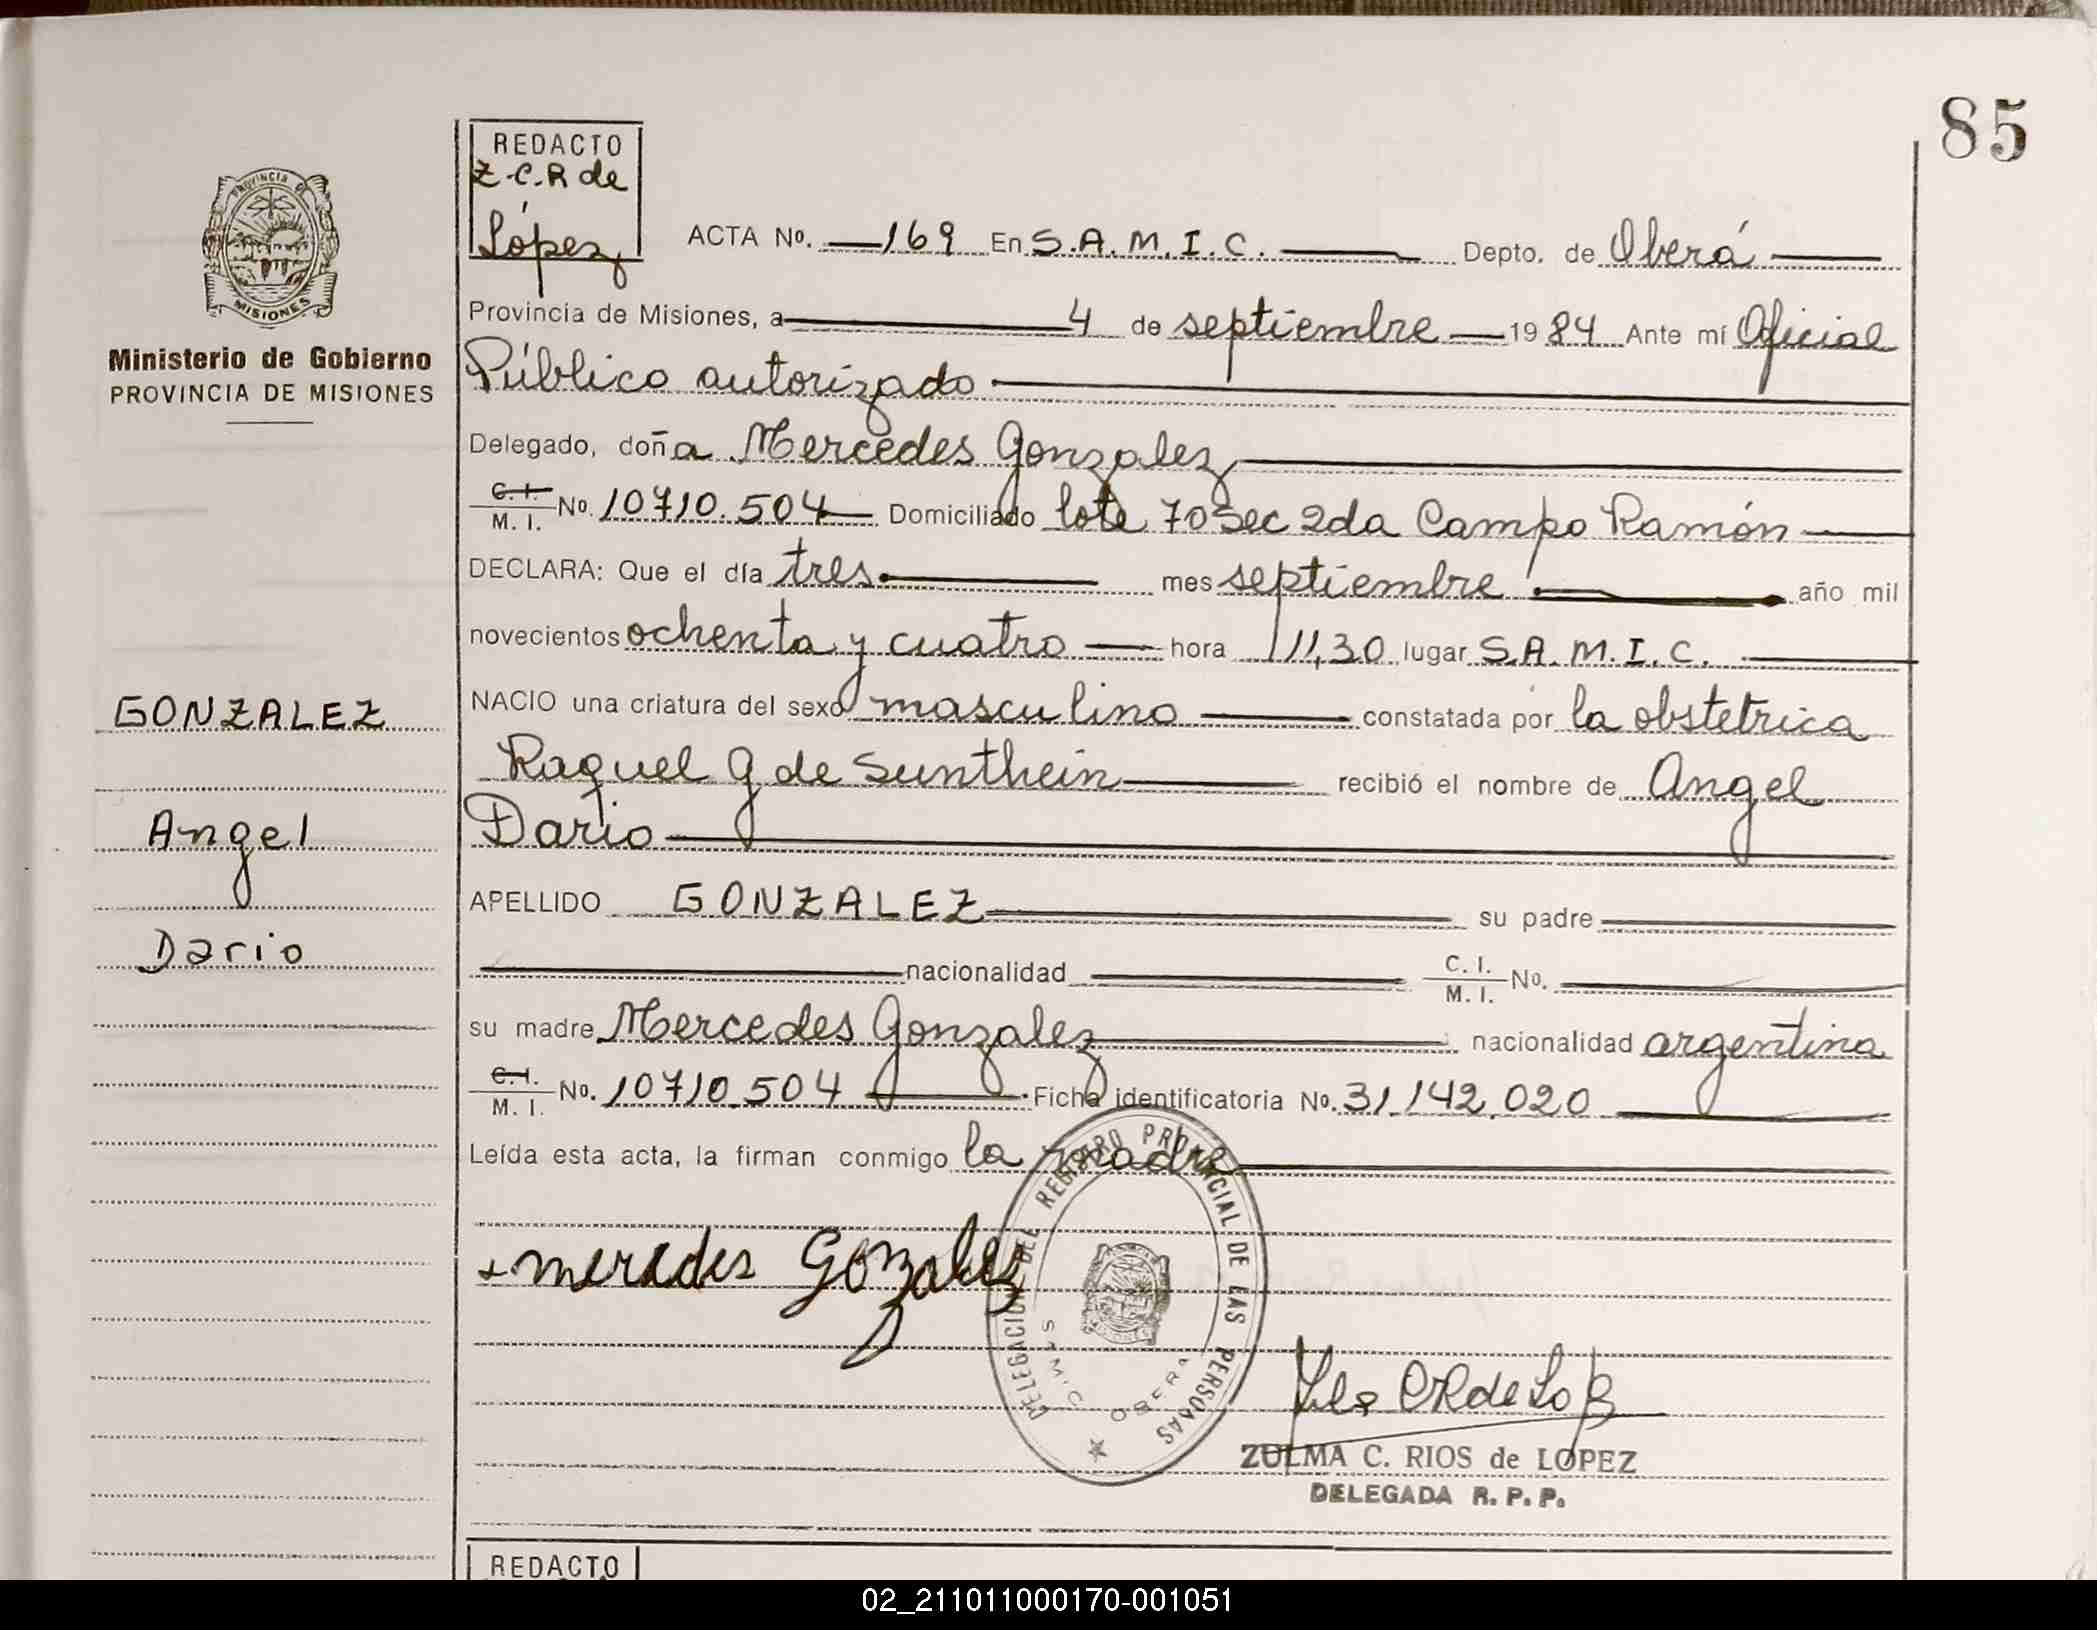 85
REDACTO
Z.C.R de
López
ACTA Nº. 169 En S.A.M.I.C. Depto. de Oberá
PROVINCIA DE
MISIONES
Ministerio de Gobierno
PROVINCIA DE MISIONES
Provincia de Misiones, a 4 de septiembre 1984 Ante mí Oficial
Público autorizado
Delegado, doña Mercedes Gonzalez
C.I. M.I. No. 10710.504 Domiciliado lote 70 Sec 2da Campo Ramón
DECLARA: Que el día tres mes septiembre año mil
novecientos ochenta y cuatro hora 11,30 lugar S.A.M.I.C.
GONZALEZ
NACIO una criatura del sexo masculino constatada por la obstetrica
Raquel G de Sunthein recibió el nombre de Angel
Angel
Dario
APELLIDO GONZALEZ su padre
Dario
nacionalidad C.I. M.I. No.
su madre Mercedes Gonzalez nacionalidad argentina
C.I. M.I. No. 10710.504 Ficha identificatoria No. 31.142.020
Leída esta acta, la firman conmigo la madre
DELEGACION DEL REGISTRO PROVINCIAL DE LAS PERSONAS
SAMIC OBERA
mercedes Gonzalez
ZULMA C. RIOS de LOPEZ
DELEGADA R. P. P.
REDACTO
02_211011000170-001051